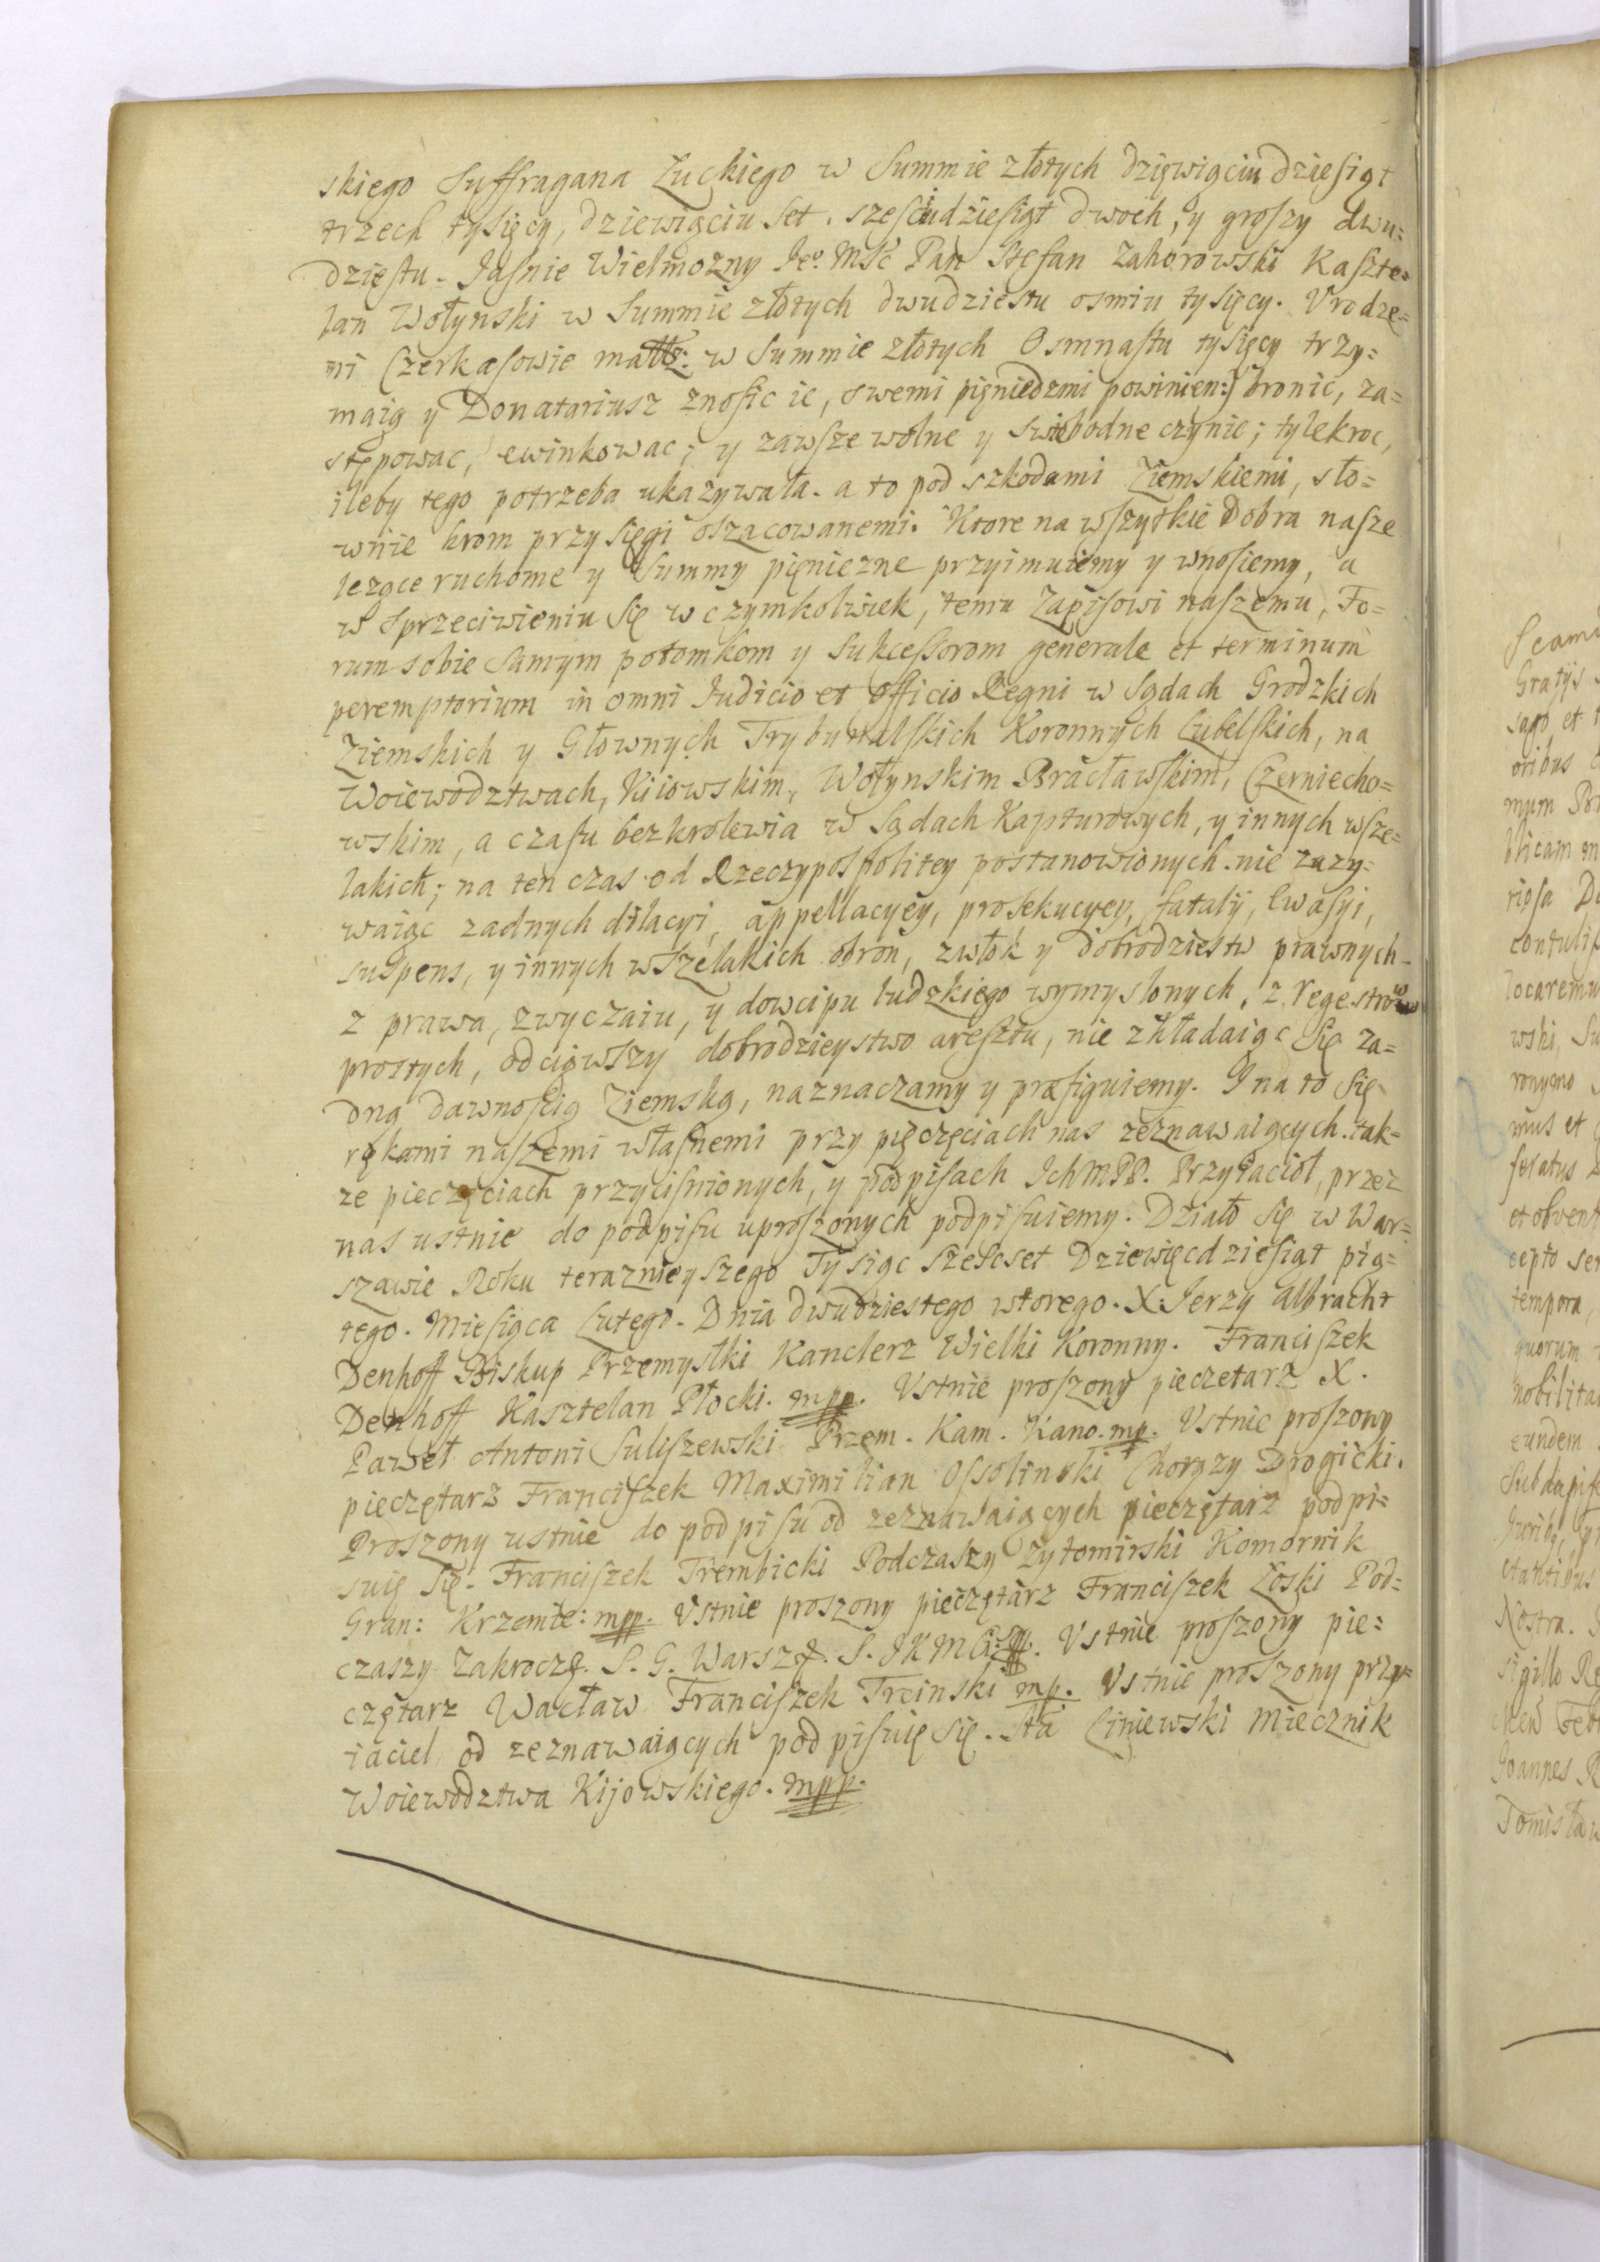 skiego Suffragana Łuckiego w Summie złotych dziewiąciu dziesiąt
trzech tysięcy, dziewiąciu set. sześciudziesiąt dwoch, y groszy dwu=
dziestu. Jaśnie Wielmożny Jeo. Mść Pan Stefan Zahorowski Kaszte=
lan Wołynski w Summie złotych dwudziestu osmiu tysięcy. Vrodze=
ni Czerkasowie małż: w Summie złotych Osmnastu tysięcy trzy=
maią y Donatariusz znosic ie, swemi pieniędzmi powinien:) bronic, za=
stępowac, ewinkowac; y zawsze wolne y swiebodne czynic; tylekroc,
ileby tego potrzeba ukazywała. a to pod szkodami Ziemskiemi, sło=
wnie krom przysięgi oszacowanemi. Ktore na wszytkie Dobra nasze
lezące ruchome y Summy pieniezne przyimuiemy y wnosiemy, a
w sprzeciwieniu się w czymkolwiek, temu Zapisowi naszemu, Fo=
rum sobie samym potomkom y Sukcessorom generale et terminum
peremptorium in omni Iudicio et officio Regni w Sądach Grodzkich
Ziemskich y Głownych Trybunalskich Koronnych Lubelskich, na
Woiewodztwach, Kiiowskim, Wołynskim Bracławskim, Czerniecho=
wskim, a czasu bezkrolewia w Sądach Kapturowych, y innych wsze=
lakich; na ten czas od Rzeczypospolitey postanowionych. nie zazy=
waiąc zadnych dilacyi, appellacyey, prosekucyey, fatalÿ, Ewasyi,
suspens, y innych wszelakich obron, zwłok y dobrodziestw prawnych
z prawa, zwyczaiu, y dowcipu ludzkiego wymyslonych, z regestrow
prostych, odciąwszy dobrodzieystwo aresztu, nie zkładaiąc się za=
dną dawnością Ziemską, naznaczamy y præfiguiemy. I na to się
rękami naszemi własnemi przy pieczęciach nas zeznawaiących. tak=
ze pieczęciach przyciśnionych, y podpisach IchMPP. Przyiacioł, przez
nas ustnie do podpisu uproszonych podpisuiemy. Działo się w War=
szawie Roku teraznieyszego Tysiąc szescset Dziewięcdziesiąt pią=
tego. Miesiąca Lutego. Dnia dwudziestego wtorego. X: Jerzy albracht
Denhoff Biskup Przemyslki Kanclerz Wielki Koronny. Franciszek
Denhoff Kasztelan Płocki. mpp. Vstnie proszony pieczetarz X.
Paweł Antoni Suliszewski Przem. Kam. Kano. mp. Vstnie proszony
pieczętarz Franciszek Maximilian Ossolinski Chorązy Drogicki.
Proszony ustnie do podpisu od zeznawaiących pieczętarz podpi=
suię się. Franciszek Trembicki Podczaszy zytomirski Komornik
Gran: Krzemie: mpp. Vstnie proszony pieczętarz Franciszek Łoski Pod=
czaszy Zakroczę. S. G. Warszę. S. JKM
Vstnie proszony pie=
czętarz Wacław Franciszek Trcinski mp. Vstnie proszony przy=
iaciel od zeznawaiących podpisuię się. Sta Liniewski Miecznik
Woiewodztwa Kijowskiego. mpp.